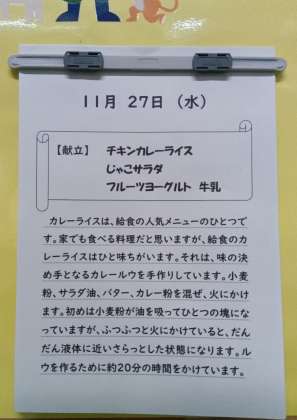 11月 27日 （水）
【献立】 チキンカレーライス
じゃこサラダ
フルーツヨーグルト 牛乳
カレーライスは、給食の人気メニューのひとつで
す。家でも食べる料理だと思いますが、給食のカ
レーライスはひと味ちがいます。それは、味の決
め手となるカレールウを手作りしています。小麦
粉、サラダ油、バター、カレー粉を混ぜ、火にかけ
ます。初めは小麦粉が油を吸ってひとつの塊にな
っていますが、ふつふつと火にかけていると、だん
だん液体に近いさらっとした状態になります。ル
ウを作るために約20分の時間をかけています。